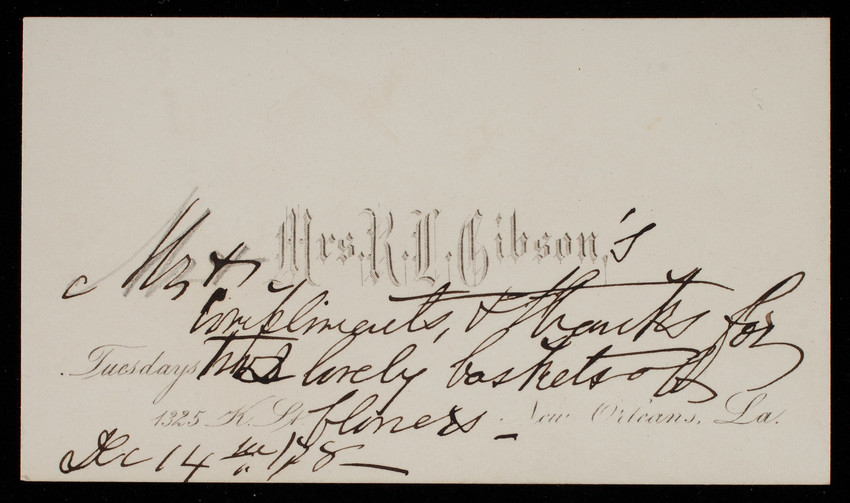 Mr & Mrs. R. L. Gibson,'s
Compliments, & thanks for
Tuesdays two lovely baskets of
1325 K. St. flowers - New Orleans, La.
Dec 14th